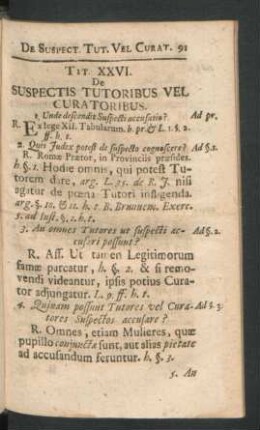 DE SUSPECT. TUT. VEL CURAT. 91
TIT. XXVI.
De
SUSPECTIS TUTORIBUS VEL
CURATORIBUS.
1. Unde descendit Suspecti accusatio? Ad pr.
R. Ex lege XII. Tabularum. h. pr. & L. 1. §. 2.
ff. h. t.
2. Quis Judex potest de suspecto cognoscere? Ad §. 1.
R. Romæ Prætor, in Provinciis præsides.
h. §. 1. Hodie omnis, qui potest Tu-
torem dare, arg. L. de R. J. nisi
agitur de pœna Tutori infligenda.
arg. §. 10. & 12. h. t. B. Brunnem. Exerc.
ad Inst. h. t.
3. An omnes Tutores ut suspecti ac- Ad §. 2.
cusari possunt?
R. Aff. Ut tamen Legitimorum
famæ parcatur, h. §. 2. & si remo-
vendi videantur, ipsis potius Cura-
tor adjungatur. L. 9. ff. h. t.
4. Quinam possunt Tutores vel Cura- Ad §. 3.
tores Suspectos accusare?
R. Omnes, etiam Mulieres, quæ
pupillo conjunctæ sunt, aut alias pietate
ad accusandum feruntur. h. §. 3.
5. An